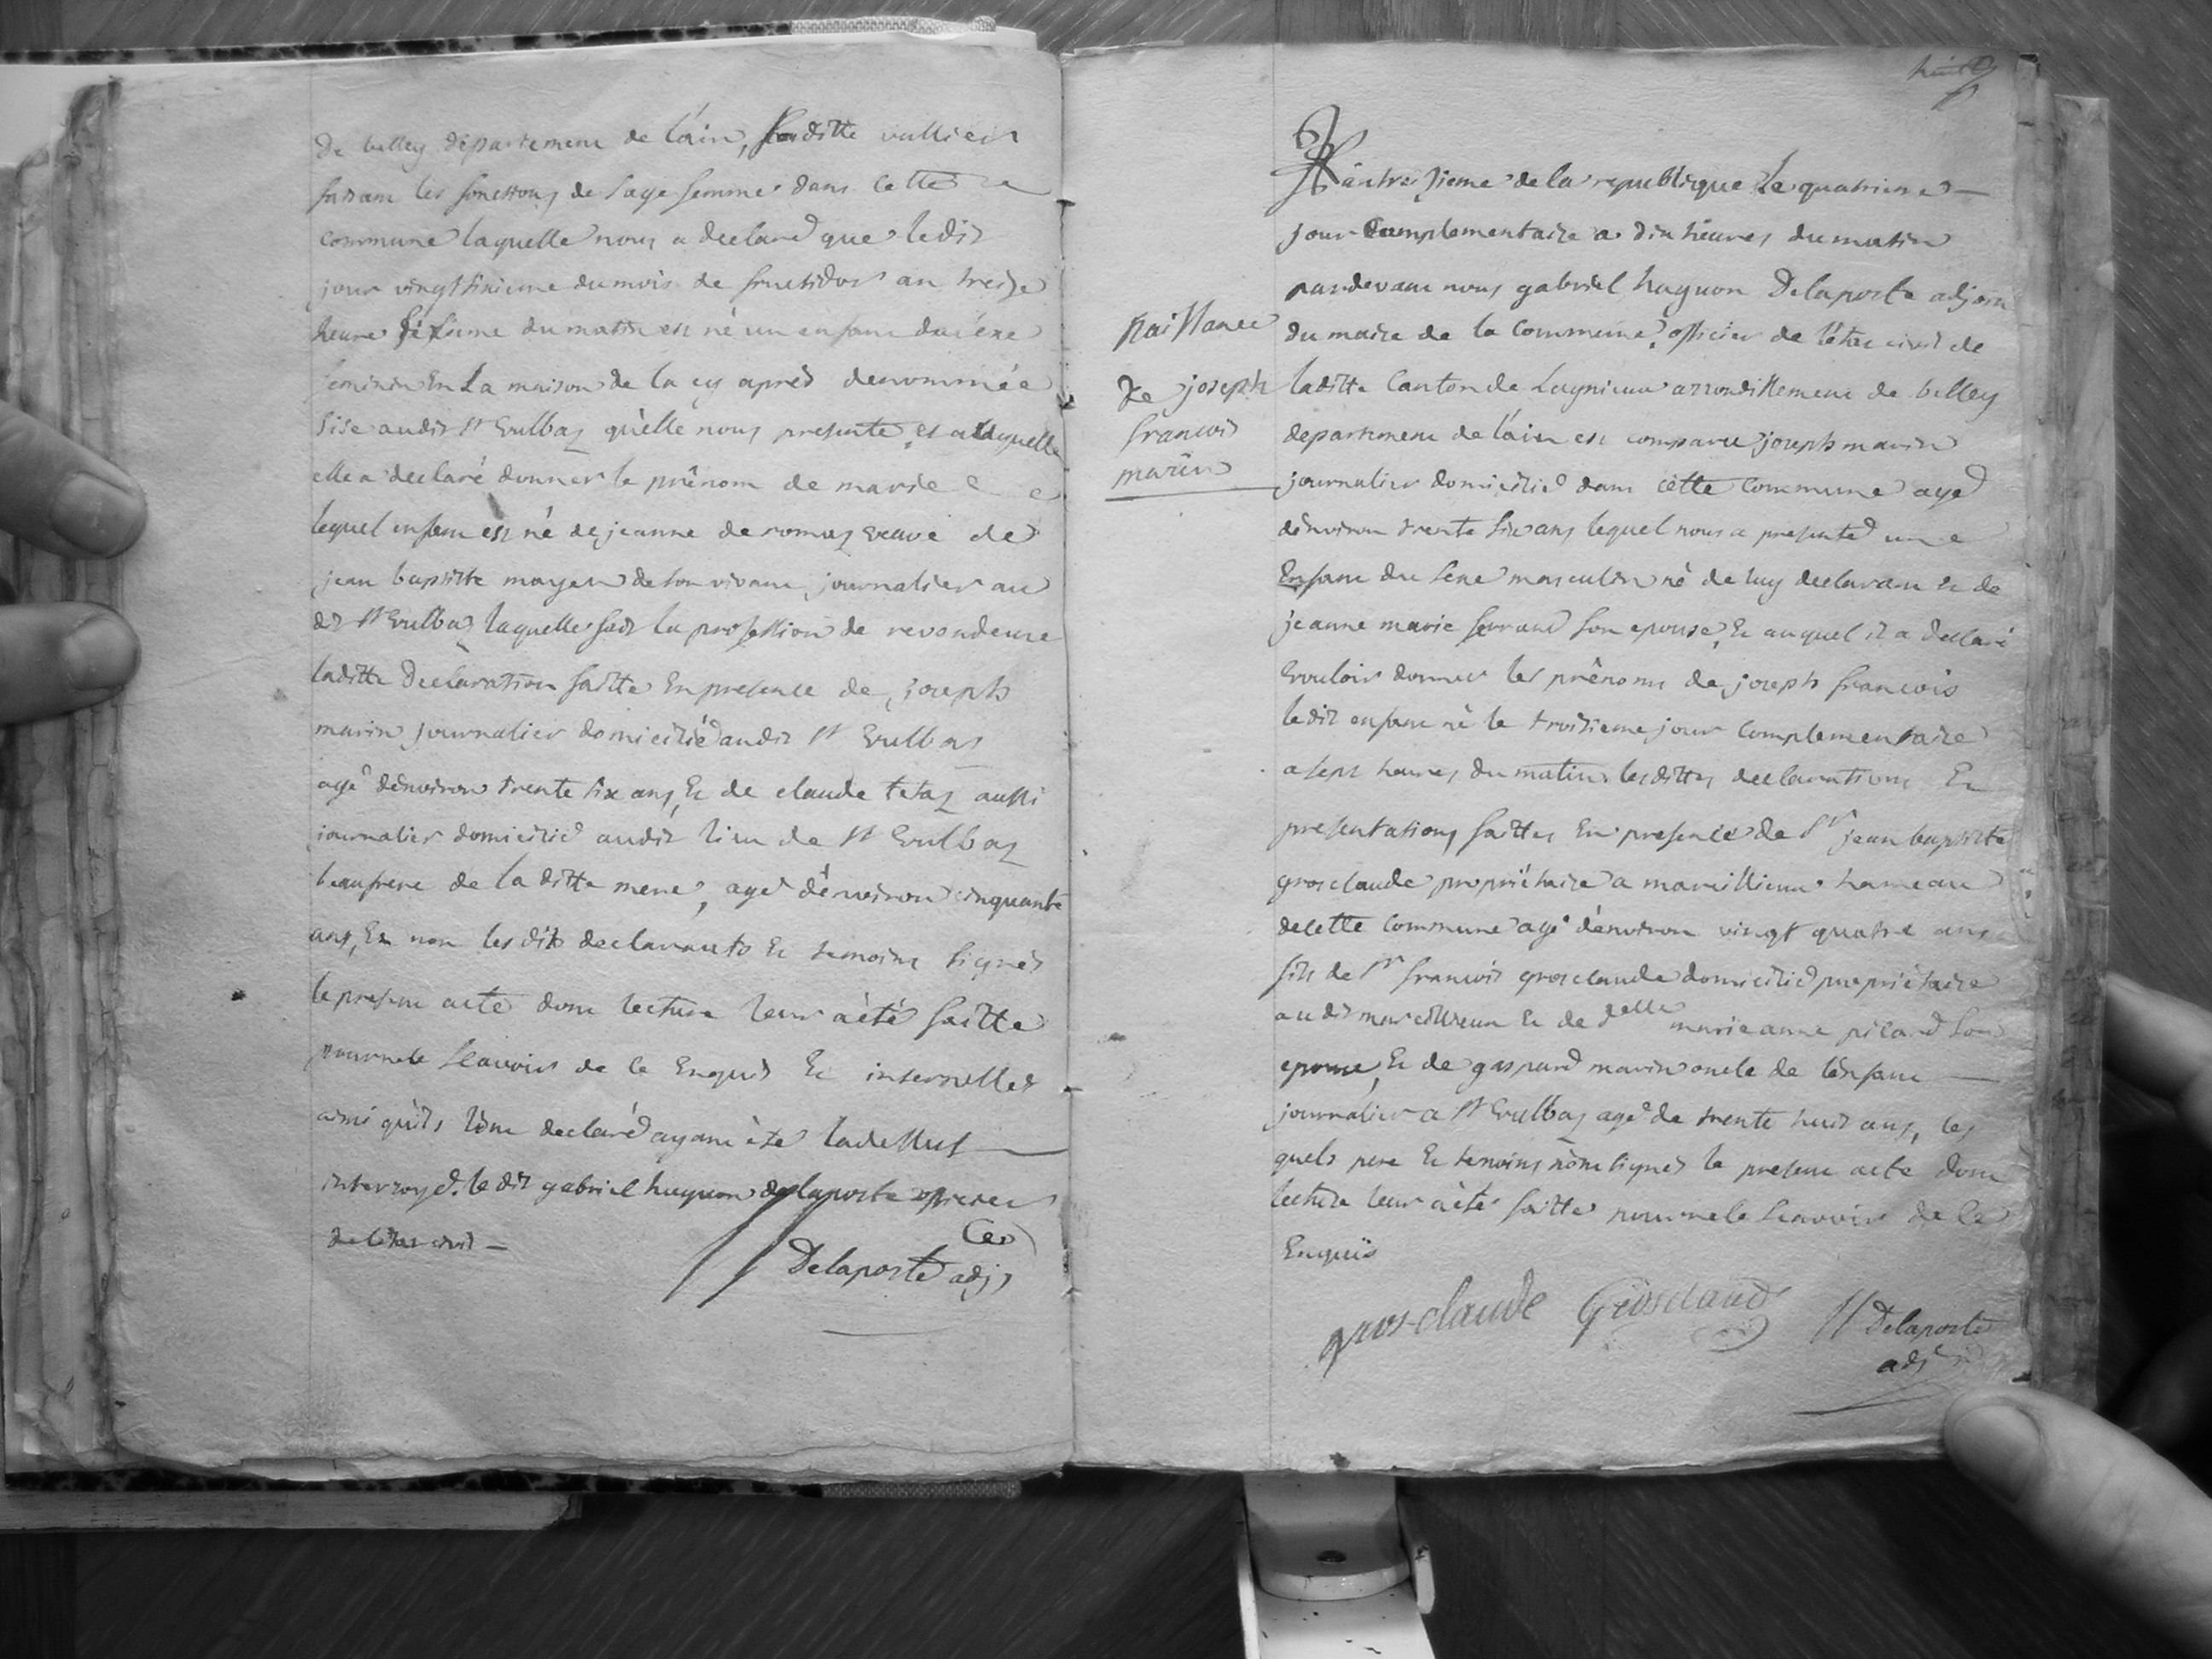 de belley departement de l'ain, ditte vullier
faisant les fonctions de sage femme dans cette
commune laquelle nous a declaré que ledit
jour vingt sixieme du mois de fructidor an treize
heure sixieme du matin est né un enfant du sexe
feminin En La maison de la cy après denommée
sise audit St Vulbaz qu'elle nous presente, et a laquelle
elle a declaré donner le prênom de marie
lequel enfant est né de jeanne de romaz veuve de
jean baptiste moyen de son vivant, journalier au
dit St Vulbaz laquelle fait la profession de revendeuse
laditte Declaration faitte En presence de, joseph
marin journalier domicilié audit St Vulbas
agé d'environ trente six ans, Et de claude tetaz aussi
journalier domicilié audit lieu de St Vulbaz
beaufrere de la ditte mere, agé d'environ cinquante
ans, Et non les dits declarants Et temoins signés
le present acte dont lecture leur a été faitte
pour ne le scavoir de ce Enquis Et interpellés
ainsi qu'ils l'ont declaré ayant été ladessus
interrogé. le dit gabriel huguon delaporte officier
de l'etat civil
Delaporte adjt
huit
L'an treizieme de la republique Le quatrieme
jour Complementaire a dix heures du matin
pardevant nous gabriel huguon Delaporte adjoint
du maire de la Commune, officier de l'état civil de
laditte Canton de Lagnieux arrondissement de belley
departement de l'ain est comparu joseph marin
journalier domicilié dans cette Commune agé
d'environ trente six ans lequel nous a presenté un
Enfant du sexe masculin né de luy declarant et de
jeanne marie ferrand son epouse, Et auquel il a declaré
vouloir donner les prênoms de joseph francois
le dit enfant né le troisieme jour Complementaire
a sept heures du matin les dittes declarations Et
presentations faittes En presence de Sr jean baptiste
grosclaude propriétaire a marcillieux hameau
de cette Commune agé d'environ vingt quatre ans
fils de Sr francois grosclaude domicilié propriétaire
au dit marcillieux Et de delle marie anne pilard son
epouse, Et de gaspard marin oncle de l'enfant
journalier a St Vulbaz agé de trente huit ans, les
quels pere Et temoins n'ont signés le present acte dont
lecture leur a été faitte pour ne le scavoir de ce
Enquis
gros-claude Grosclaude Delaporte
adjt
naissance
de joseph
francois
marin